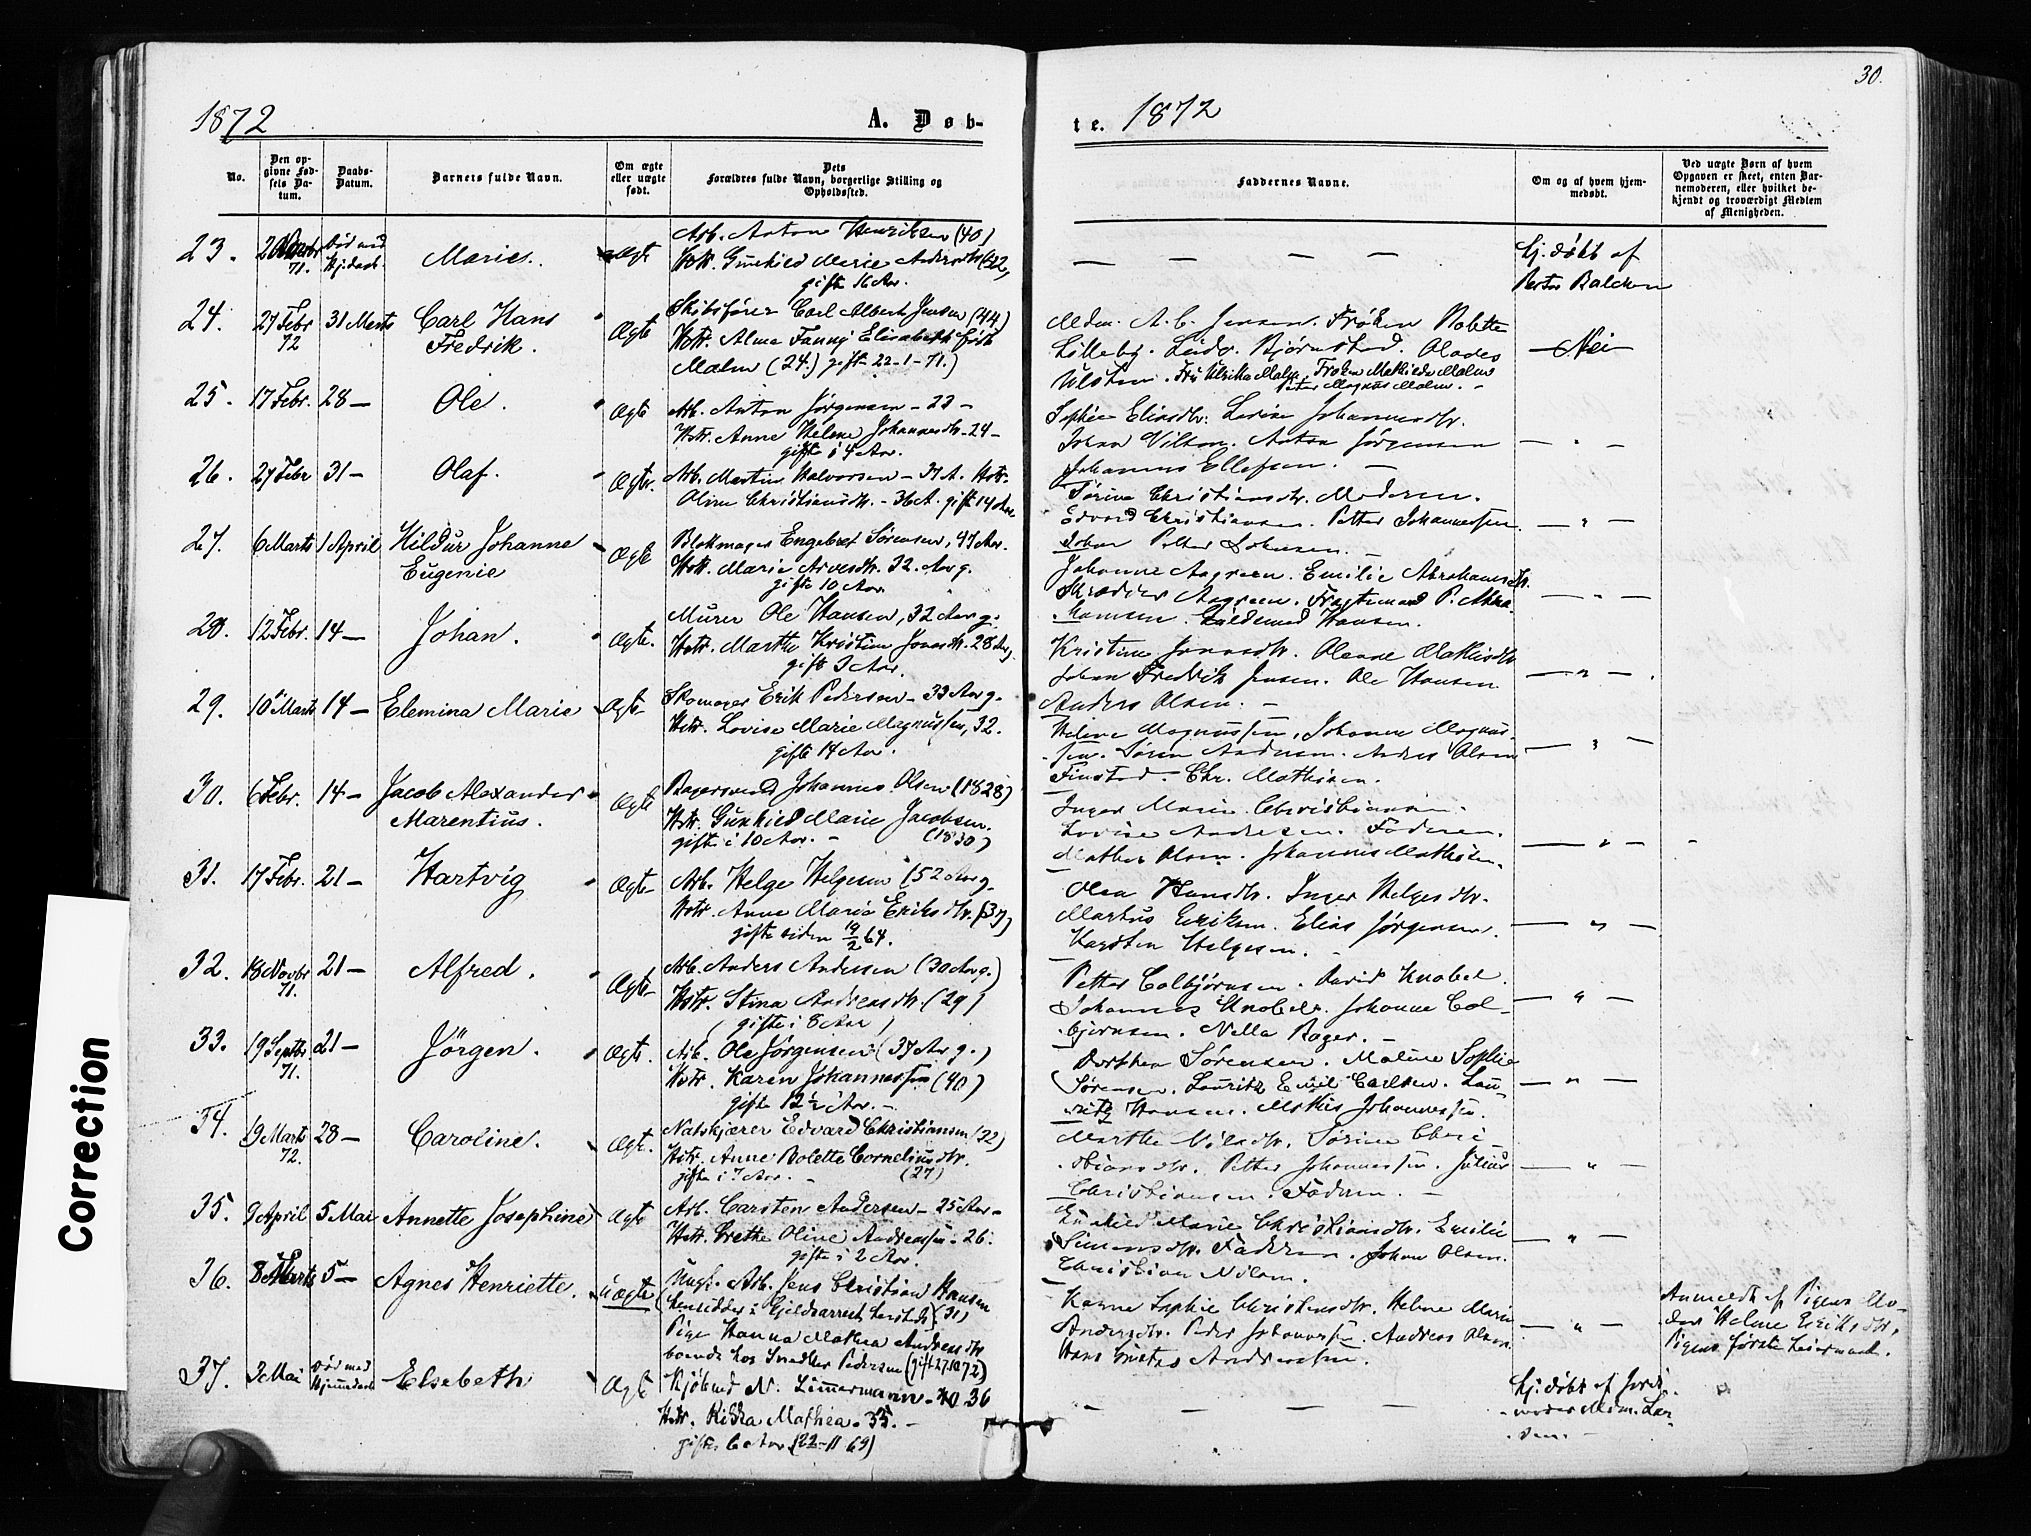 30.
1872
A. Døb-
te. 1872
No.
Den op-
givne Fød-
sels Da-
tum.
Daabs-
Datum.
Barnets fulde Navn.
Om ægte
eller uægte
født.
Dets
Forældres fulde Navn, borgerlige Stilling og
Opholdssted.
Faddernes Navne.
Om og af hvem hjem-
medøbt.
Ved uægte Børn af hvem
Opgaven er skeet, enten Bar-
nemoderen, eller hvilket be-
kjendt og troværdigt Medlem
af Menigheden.
23. 71. Død ved Hj.daab. Maries. Ægte
Arb. Anton Henriksen (40)
Hstr. Gunhild Marie Andersdtr
gifte 16 Aar.
— — — — hj. døbt af
24. 27 Febr 72 31 Marts Carl Hans
Fredrik. Ægte
Skibsfører Carl Albert Jensen (44)
Hstr. Alma Fanny Elisabeth født
Malm (24.) gift 22-1-71.)
Mdm. A. C. Jensen. Frøken Bolette
Lilleby. Ludv. Bjørnstad. Olaves
Ulsten. Fru Ulrikka Malm. Frøken Mathilde Malm
Peter Magnus Malm. —
— Nei —
25. 17 Febr. 28 — Ole. Ægte
Arb. Anton Jørgensen — 23 —
Hstr. Anne Helene Johannesdtr. — 24 —
gifte i 4 Aar.
Sophie Eliasdtr. Lovise Johannesdtr.
Johan Nilsen. Anton Jørgensen
Johannes Ellefsen. —
— " —
26. 27 Febr 31 — Olaf. Ægte.
Arb. Martin Halvorsen — 37 A. Hstr.
Oline Christiansdtr. — 36 A. gift 14 Aar.
Sørine Christiansdtr. Moderen.
Edvard Christiansen. Petter Johannessen.
Johan Petter Johnsen. —
— " —
27. 6 Marts 1 April Hildur Johanne
Eugenie Ægte
Blokmager Engebret Sørensen, 47 Aar.
Hstr. Marie Arvesdtr. 32 Aar g.
gifte 10 Aar.
Johanne Aagreen. Emilie Abrahamsdtr.
Skrædder Aagreen. Fragtemand P. Abra-
hamsen. Hansen.
— " —
28. 12 Febr. 14 — Johan. Ægte.
Murer Ole Hansen, 32 Aar g.
Hstr. Marthe Kristine Jonasdtr. 28 Aar g.
gift 3 Aar.
Kristine Jonasdtr. Olende Mathisdtr
Johan Fredrik Jensen. Ole Hansen
Anders Olsen. —
— " — .
29. 10 Marts 14 — Elemina Marie Ægte
Skomager Erik Pedersen — 33 Aar g.
Hstr. Lovise Marie Magnussen, 32.
gifte 14 Aar.
Helene Magnussen, Johanne Magnus-
sen. Søren Andersen. Andres Olsen
Finstad. Chr. Mathisen.
— " —
30. 6 Febr. 14 — Jacob Alexander
Marentius. Ægte
Bagersvend Johannes Olsen (1828)
Hstr. Gunhild Marie Jacobsen.
gifte i 10 Aar. — (1830)
Inger Marie Christiansen.
Lovise Andersen. Faderen.
Mathes Olsen. Johannes Mathisen.
— " —
31. 17 Febr. 21 — Hartvig Ægte
Arb. Helge Helgesen (52 Aar g.
Hstr. Anne Marie Eriksdtr. (37)
gifte siden 19/2 64.
Olea Hansdtr. Inger Helgesdtr.
Martius Eriksen. Elias Jørgensen.
Karsten Helgesen.
— " —
32. 18 Novbr 71. 21 — Alfred. Ægte
Arb. Anders Andersen (30 Aar g.)
Hstr. Stina Andreasdtr. (29)
(gifte i 8 Aar)
Petter Colbjørnsen. David Knobel
Johannes Knobel. Johanne Col-
bjørnsen. Nella Bager. —
— " —
33. 19 Septbr. 71. 21 — Jörgen. Ægte.
Arb. Ole Jørgensen (37 Aar g.)
Hstr. Karen Johannessen (40)
gifte 12 ½ Aar. —
Dorthea Sørensen. Maline Sophie
Sørensen. Lauritz Emil Carlsen. Lau-
ritz Hansen. Mathis Johannessen.
— " —
34. 19 Marts 72. 28 — Caroline. Ægte.
Natskjærer Edvard Christiansen (32)
Hstr. Anne Bolette Corneliusdtr.
gifte i 7 Aar. — (27)
Marthe Nilsdtr. Sørine Chri-
stiansdtr. Petter Johannessen. Julius
Christiansen. Faderen. —
— " —
35. 9 April 5 Mai Annette Josephine Ægte
Arb. Carsten Andersen — 25 Aar —
Hstr. Grethe Oline Andreassen — 26.
gifte i 2 Aar.
Gunhild Marie Christiansdtr. Emilie
Simensdtr. Faderen. Johan Olsen.
Christian Nilsen.
— " —
36. 8 Marts 5 — Agnes Henriette. Uægte
Ungk. Arb. Jens Christian Hansen
(31)
Pige Hanna Mathea Andreasdtr
boende hos Snedker Pedersen (gift 27.10.72)
Karen Sophie Christensdtr. Helene Marie
Andersdtr. Peder Johannessen. Andreas Olsen.
Hans Gustav Andreassen.
— " —
Anmeldt af Pigens Mo-
der Helene Eriksdtr.
Pigens første Leiermaal.
37. 3 Mai Død med Hjemmedaab Elsebeth Ægte
Kjøbmd N. Zimmermann — 36
Hstr. Mathea — 35. —
gifte Aar (22-11 69)
— — — — hj. døbt af Jord-
moder Mdm. Lar-
sen. —
Correction